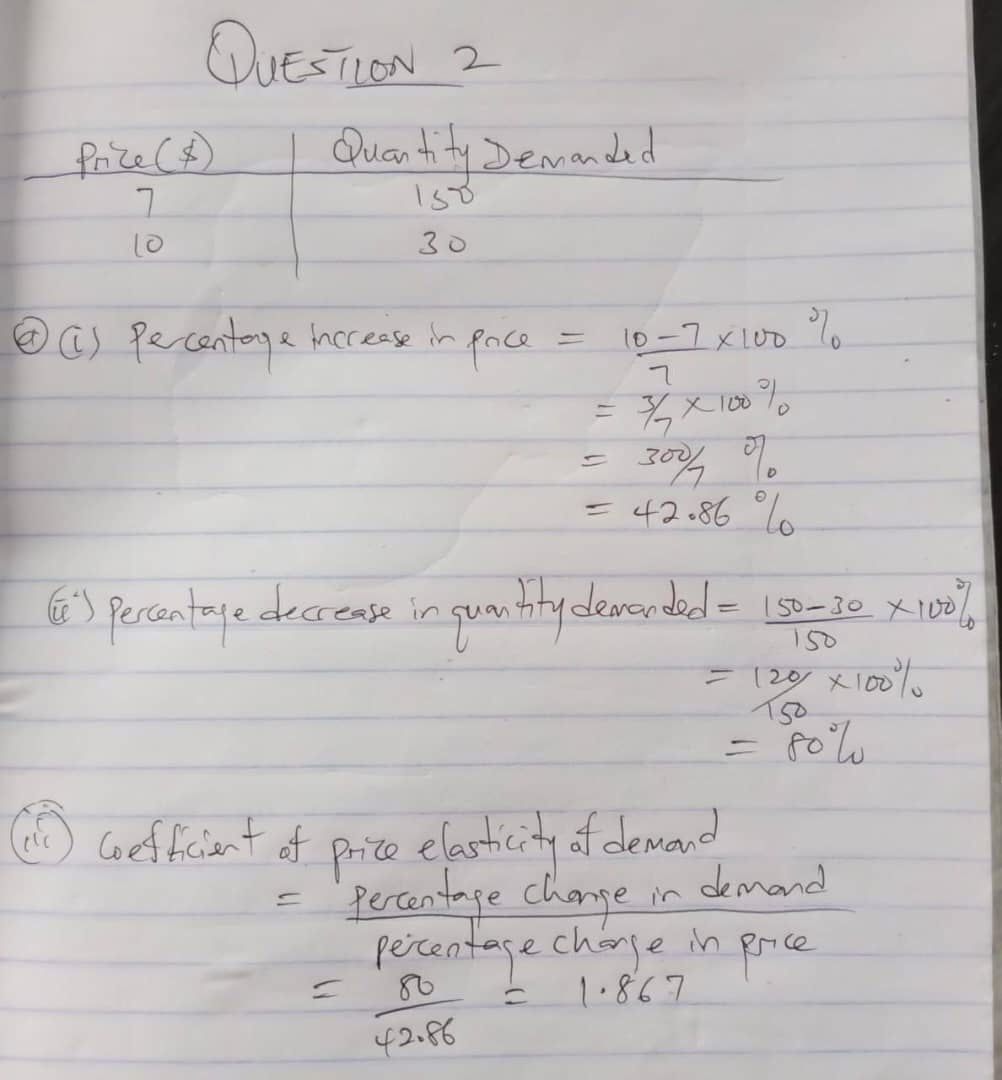 QUESTION 2
Price ($) | Quantity Demanded
7 | 150
10 | 30
(a) (i) Percentage Increase in price = 10-7 × 100 %
7
= 3/7 × 100 %
= 300/7 %
= 42.86 %
(ii) percentage decrease in quantity demanded = 150-30 × 100%
150
= 120/150 × 100%
= 80%
(iii) Coefficient of price elasticity of demand
= percentage change in demand
percentage change in price
= 80 = 1.867
42.86